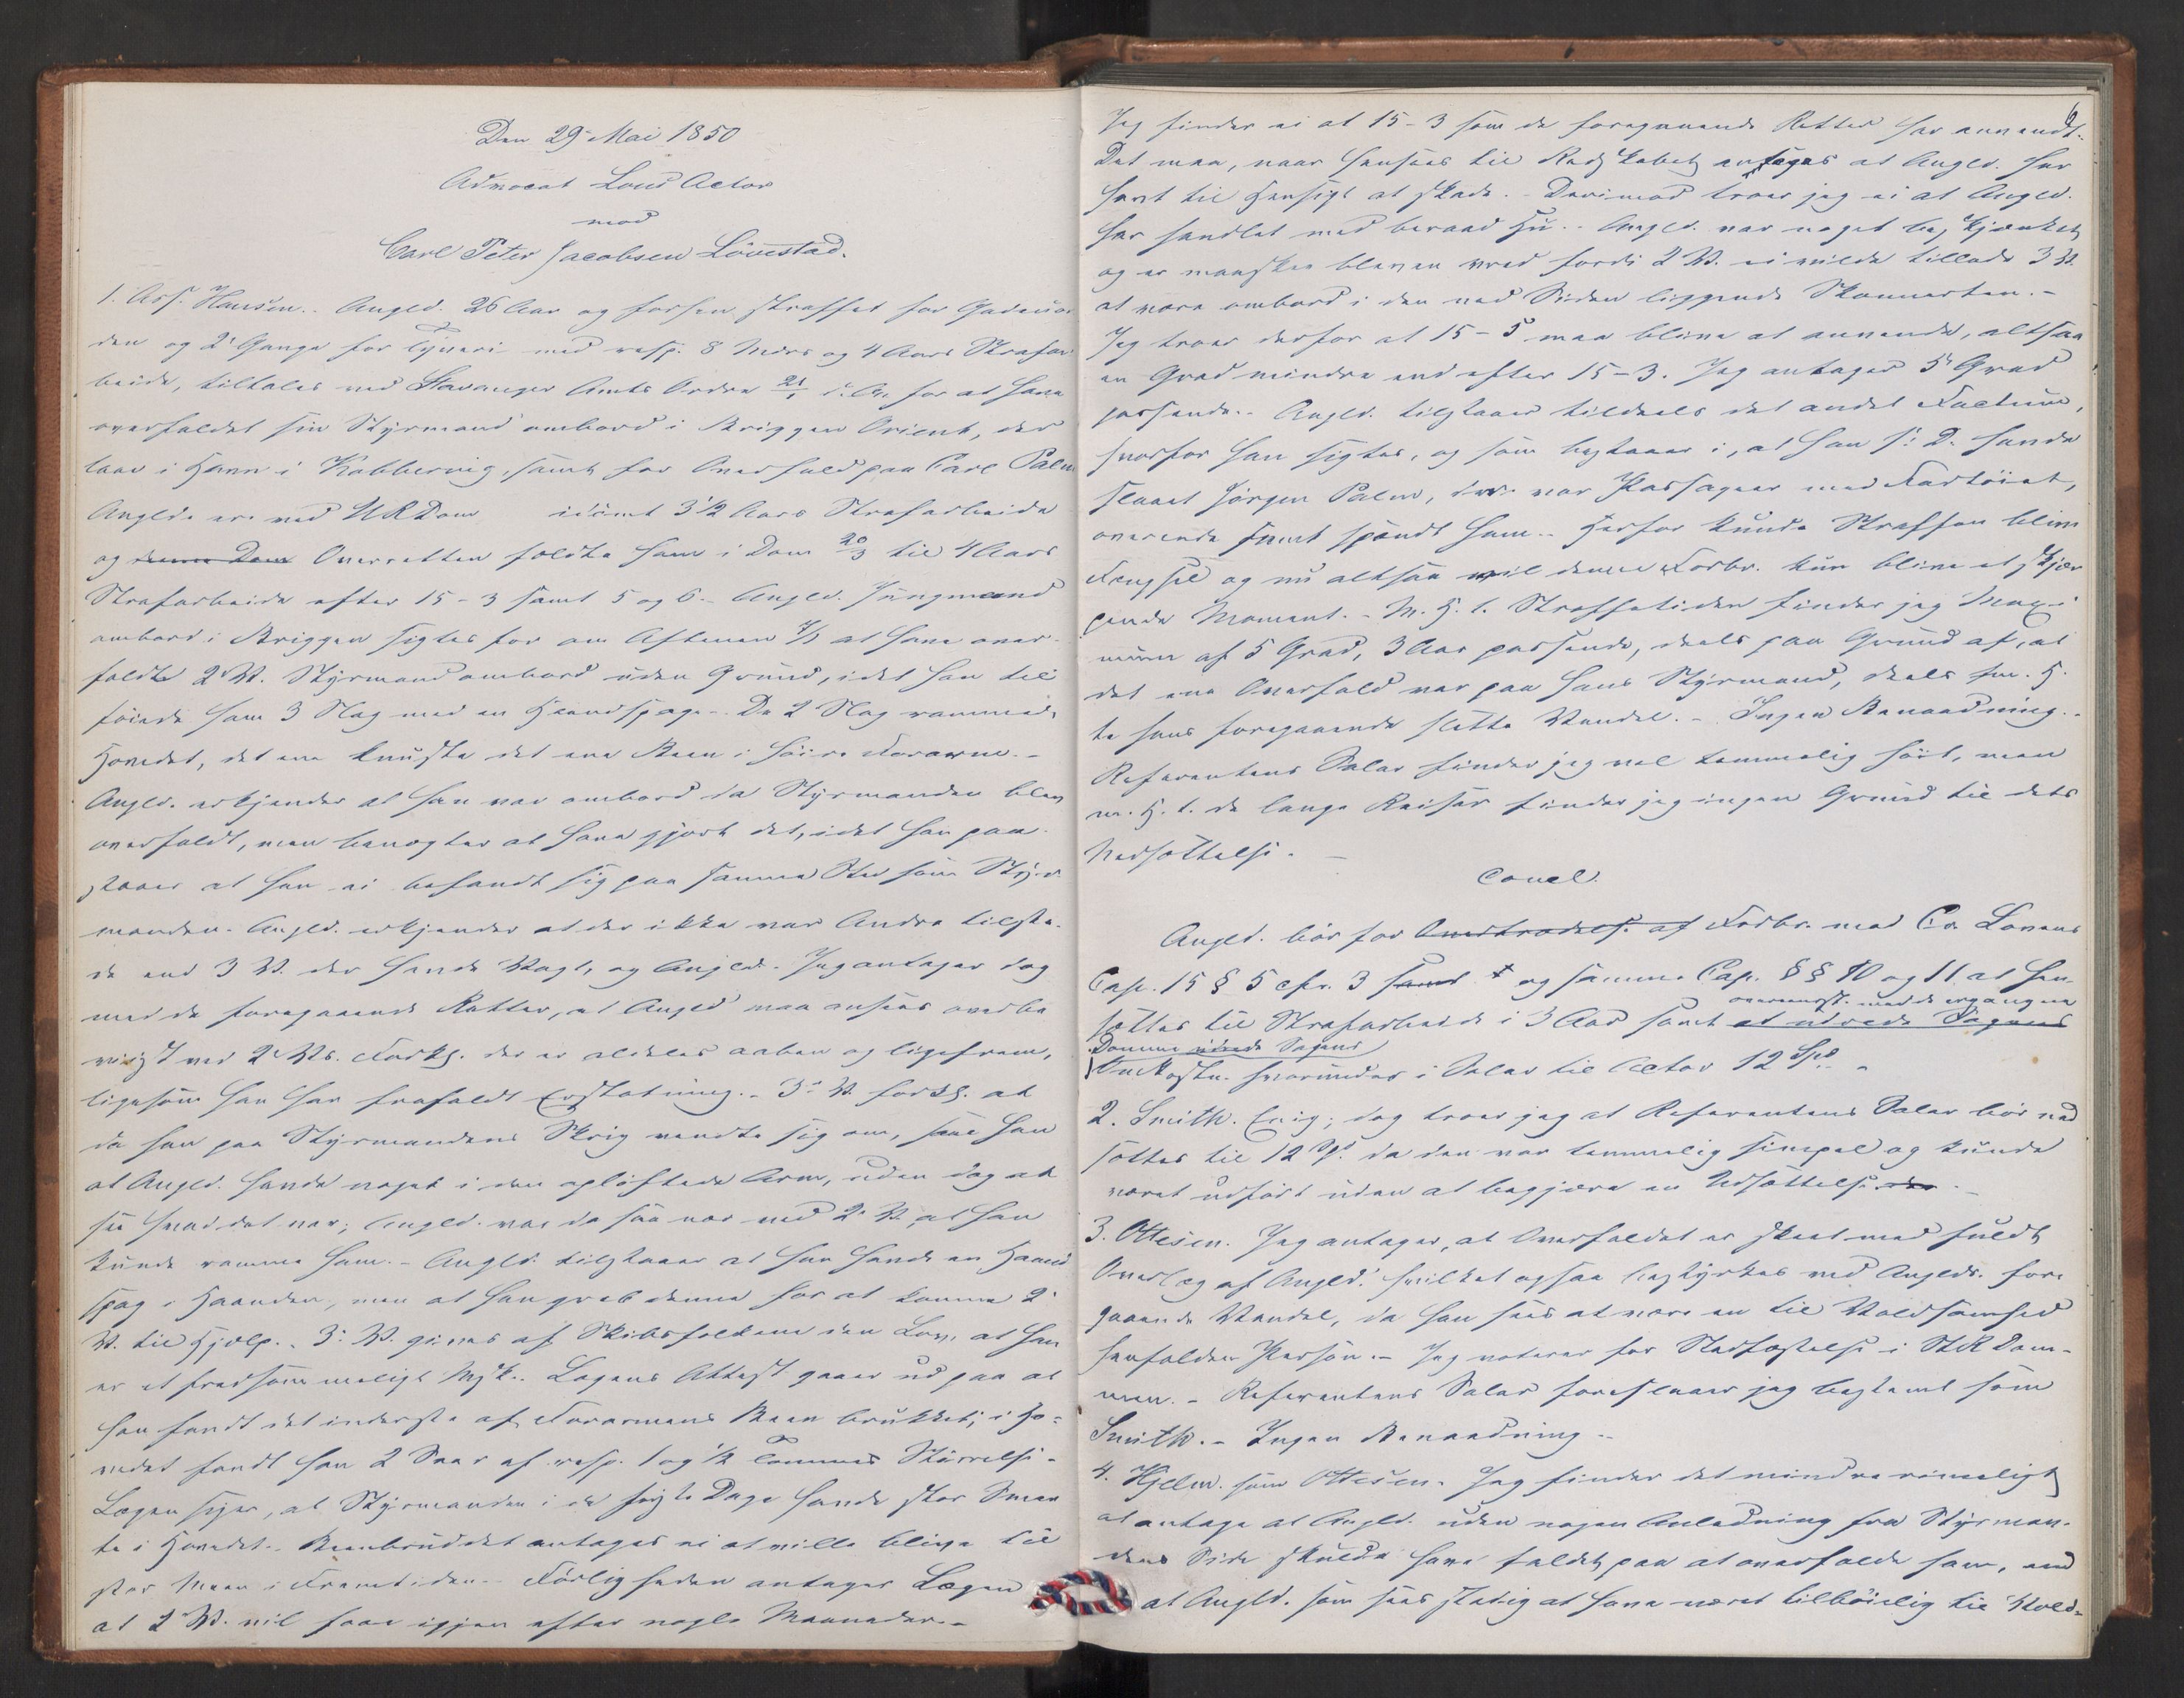 Den 29 Mai 1850
Advocat Lous Actor
mod
Carl Peter Jacobsen Lövestad.
1. Ass. Hansen. Angld. 26 Aar og forhen straffet for Gadeuor
den og 2 Gange for Tyveri med resp. 8 Mdrs og 4 Aars Strafar
beide, tiltales ved Stavanger Amts Ordre d. A. for at have
overfaldet sin Styrmand ombord i Briggen Orient, der
laae i Havn i Kobbervig, samt for Overfald paa Carl Palm
Angld. er ved URDom idömt 3 1/2 Aars Strafarbeide
og denne Dom Overretten fældte ham i Dom 20/3 til 4 Aars
Strafarbeide efter 15-3 samt 5 og 6. Angld. Jungmand
ombord i Briggen sigtes for om Aftenen at have over-
faldt 2 V. Styrmand ombord uden Grund, idet han til
föiede ham 3 Slag med en Haandspage. De 2 Slag rammede
Hovedet, det ene knuste det ene Been i höire Forarm.
Angld. erkjender at han var ombord da Styrmanden blev
overfaldt, men benegter at have gjort det, idet han paa
staaer at han ei befandt sig paa samme Sted som Styr-
manden. Angld. erkjender at der ikke var Andre tilste-
de end 3 V. der havde Vagt, og Angld. Jeg antager dog
med de foregaaende Retter, at Angld maa ansees overbe
viist ved 2 Vs. Forkl. der er aldeles aaben og ligefrem,
ligesom han har frafaldt Erstatning. 3 V. forkl. at
da han paa Styrmandens Skrig vendte sig om, saae han
at Angld. havde noget i den oplöftede Arm, uden dog at
see hvad det var; Angld. var da saa nær ved 2 V. at han
kunde ramme ham. Angld. tilstaaer at han havde en Haand
spag i Haanden, men at han greb denne for at komme 2
V. til Hjælp. 3 V. gives af Skibsfolkene den Lov, at han
er et fredsommeligt Msk. Lægens Attest gaaer ud paa at
han fandt det inderste af Forarmens Been brukket; i Ho-
vedet fandt han 2 Saar af resp. 1 og 1/2 Tommes Störrelse.
Lægen siger, at Styrmanden i de förste Dage havde stor Smer
te i Hovedet. Beenbruddet antages ei at ville blive til
stor Meen i Fremtiden. Förligheden antager Lægen
at 2 V. vil faae igjen efter nogle Maaneder.
6
Jeg finder ei at 15-3 som de foregaaende Retter har anvendt.
Det maa, naar henses til Redskabet antages at Angld. har
havt til Hensigt at skade. Derimod troer jeg ei at Angld.
har handlet med beraad Hu. Angld. var noget beskjænket
og er maaskee bleven vred fordi 2 V. ei vilde tillade 3 V.
at være ombord i den ved Siden liggende Skonnerten.
Jeg troer derfor at 15-5 maa blive at anvende, altsaa
en Grad mindre end efter 15-3. Jeg antager 5 Grad
passende. Angld. tilstaaer tildeels det andet Factum,
hvorfor han sigtes, og som bestaaer i, at han s. D. havde
slaaet Jörgen Palm, der var Passageer med Fartöiet,
overende samt spændt ham. Herfor kunde Straffen blive
Fængsel og nu altsaa vil denne Forbr. kun blive et skjær
pende Moment. M. H. t. Straffetiden finder jeg Maxi-
mum af 5 Grad, 3 Aar passende, deels paa Grund af, at
det ene Overfald var paa hans Styrmand, deels m. H.
til hans foregaaende slette Vandel. Ingen Benaadning.
Referentens Salær finder jeg vel temmelig höit, men
m. H. t. de lange Reiser finder jeg ingen Grund til dets
Nedsættelse.
Concl.
Angld. bör for Overtrædelse af Forbr. mod Cr. Lovens
Cap. 15 § 5 cfr. 3 samt og samme Cap. §§ 10 og 11 at hen-
sættes til Strafarbeide i 3 Aar samt at udrede Sagens
overeensst. med de ergangne
Domme udrede Sagens
Omkostn. hvorunder i Salær til Actor 12 Spd.
2. Smith. Enig; dog troer jeg at Referentens Salær bör ned
sættes til 12 Spd. da den var temmelig simpel og kunde
været udfört uden at begjære en Udsættelse.
3. Ottesen. Jeg antager, at Overfaldet er skeet med fuldt
Overlæg af Angld. hvilket ogsaa bestyrkes ved Anglds. fore
gaaende Vandel, da han sees at være en til Voldsomhed
henfalden Person. Jeg voterer for Stadfæstelse i StRDom-
men. Referentens Salær foreslaaer jeg bestemt som
Smith. Ingen Benaadning.
4. Hjelm. som Ottesen. Jeg finder det mindre rimeligt
at antage at Angld. uden nogen Anledning fra Styrman-
dens Side skulde have faldet paa at overfalde ham, end
at Angld. som sees stadig at have været tilböielig til Vold-